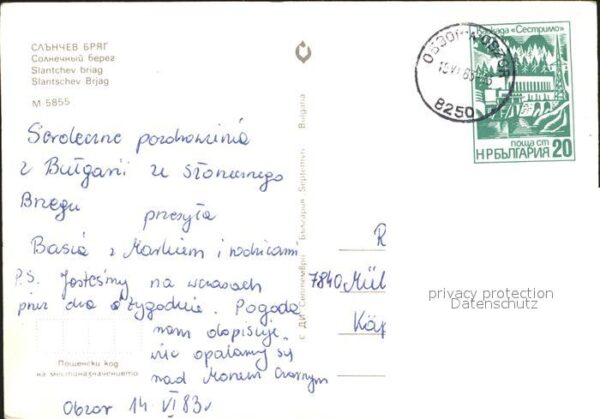 СЛЪНЧЕВ БРЯГ
Солнечный берег
Slantchev briag
Slantschev Brjag
М 5855
Serdeczne pozdrowienia
z Bułgarii ze słonecznego
Brzegu
przesyła
Basia z Markiem i rodzicami
P.S. Jesteśmy na wczasach
przez dwa tygodnie. Pogoda
nam dopisuje,
więc opalamy się
nad Morzem Czarnym
Obzor 14 VI 83r
Пощенски код
на местоназначението
с ДИ Септември България Septemvri Bulgaria
каскада «Сестримо»
поща ст
НРБЪЛГАРИЯ 20
ОБЗОР OBZOR
8250
R
7840 Mül
Käp
privacy protection
Datenschutz